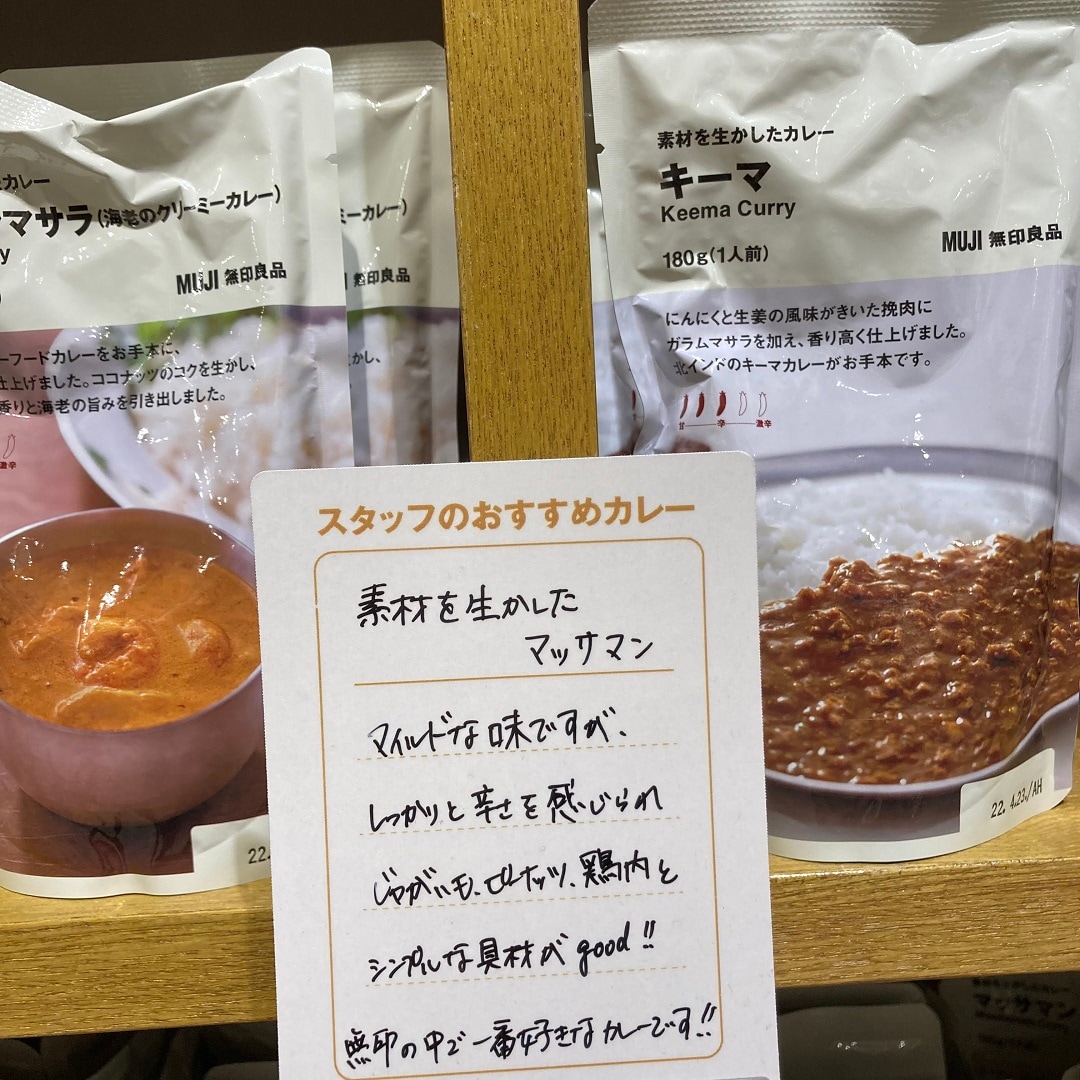 カレー
マサラ(海老のクリーミーカレー)
MUJI 無印良品
ーフードカレーをお手本に、
仕上げました。ココナッツのコクを生かし、
香りと海老の旨みを引き出しました。
激辛
22.
ミーカレー)
MUJI 無印良品
かし、
素材を生かしたカレー
キーマ
Keema Curry
180g(1人前)
MUJI 無印良品
にんにくと生姜の風味がきいた挽肉に
ガラムマサラを加え、香り高く仕上げました。
北インドのキーマカレーがお手本です。
甘 辛 激辛
22. 4.23./AH
スタッフのおすすめカレー
素材を生かした
マッサマン
マイルドな味ですが、
しっかりと辛さを感じられ
じゃがいも、ピーナッツ、鶏肉と
シンプルな具材がgood!!
無印の中で一番好きなカレーです!!
マッサマン